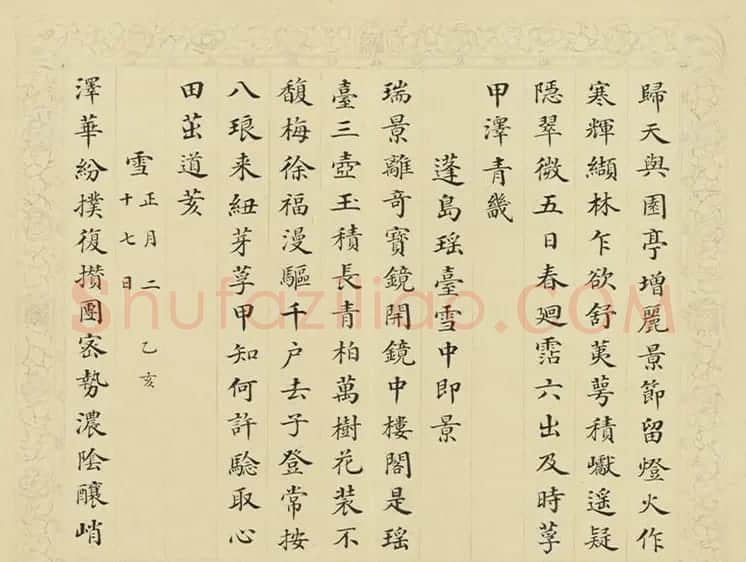 歸天與園亭增麗景節留燈火作
寒輝纈林乍欲舒荑萼積巘遥疑
隱翠微五日春廻霑六出及時莩
甲澤青畿
蓬島瑶臺雪中即景
瑞景離奇寶鏡開鏡中樓閣是瑶
臺三壺玉積長青柏萬樹花装不
馥梅徐福漫驅千户去子登常按
八琅来紐芽莩甲知何許驗取心
田茁道荄
雪 正月二十七日 乙亥
澤華紛撲復攢團密勢濃陰釀峭
Shufaziliao.COM